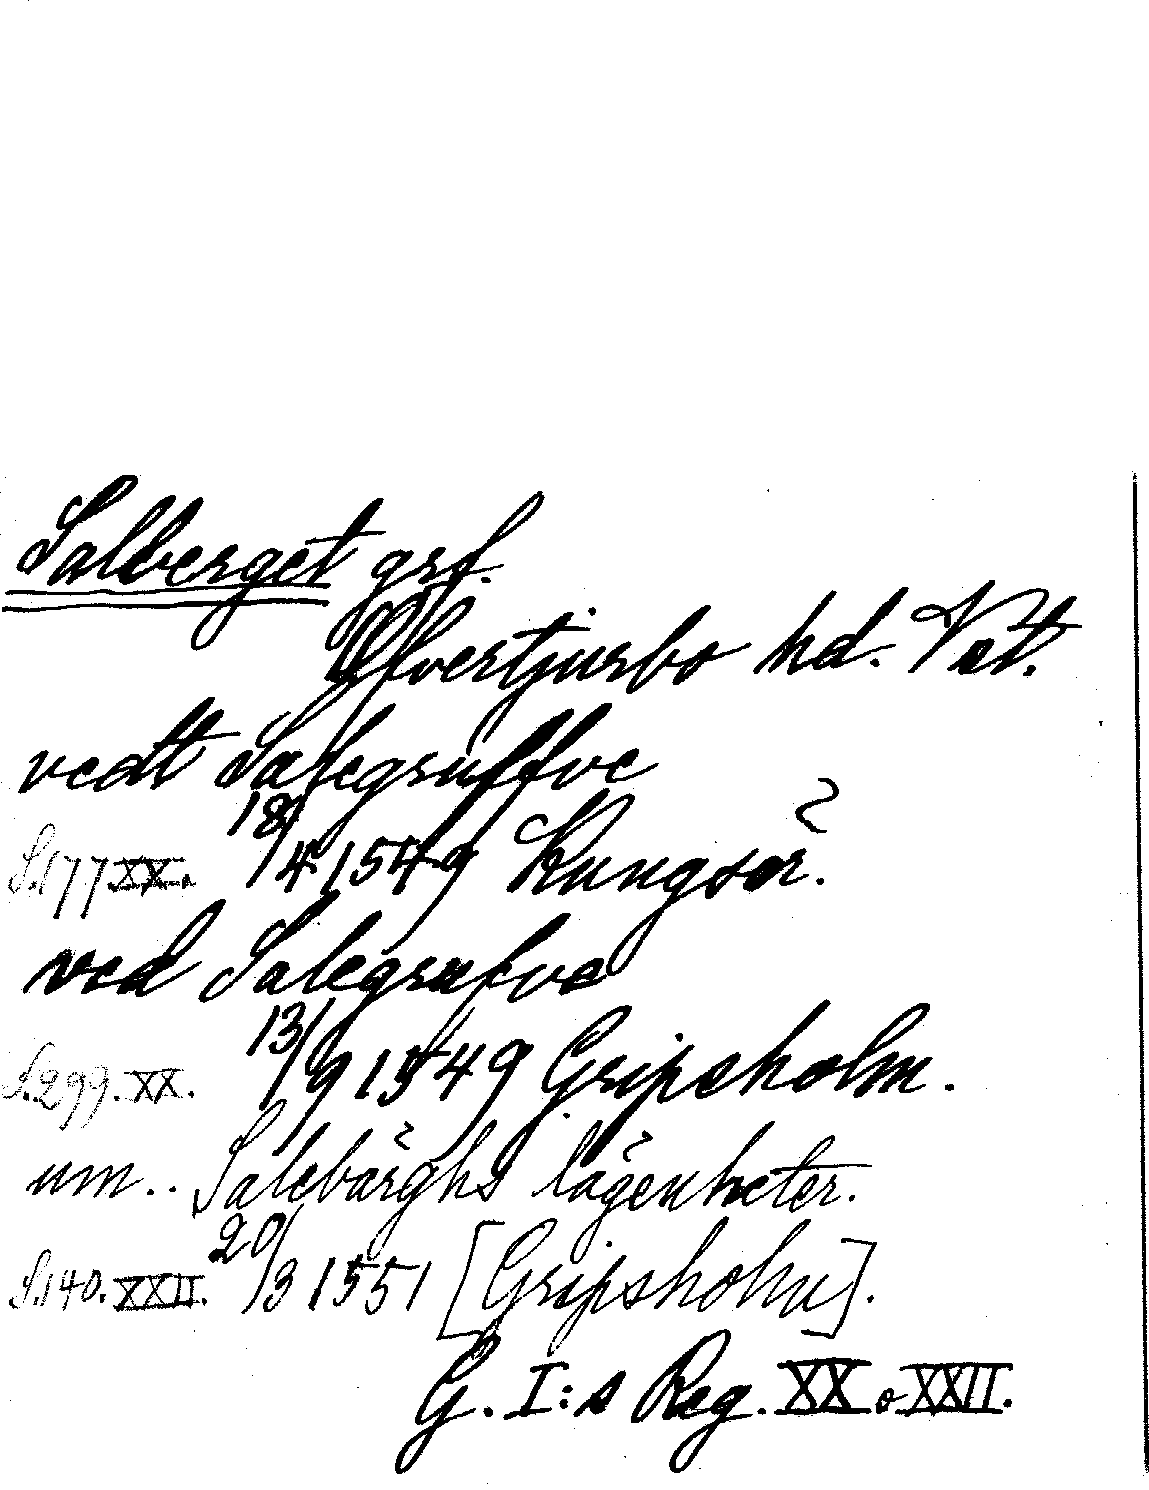 Salberget grf.
Öfvertjurbo hd. Vet.
vedt Salegruffve
S. 177 XX. 18/4 1549 Kungsör.
ved Salegrufve
S. 299. XX. 13/9 1549 Gripsholm.
um.. Salebärghs lägenheter.
S. 140. XXII. 20/3 1551 [Gripsholm].
G. I:s Reg. XX o XXII.